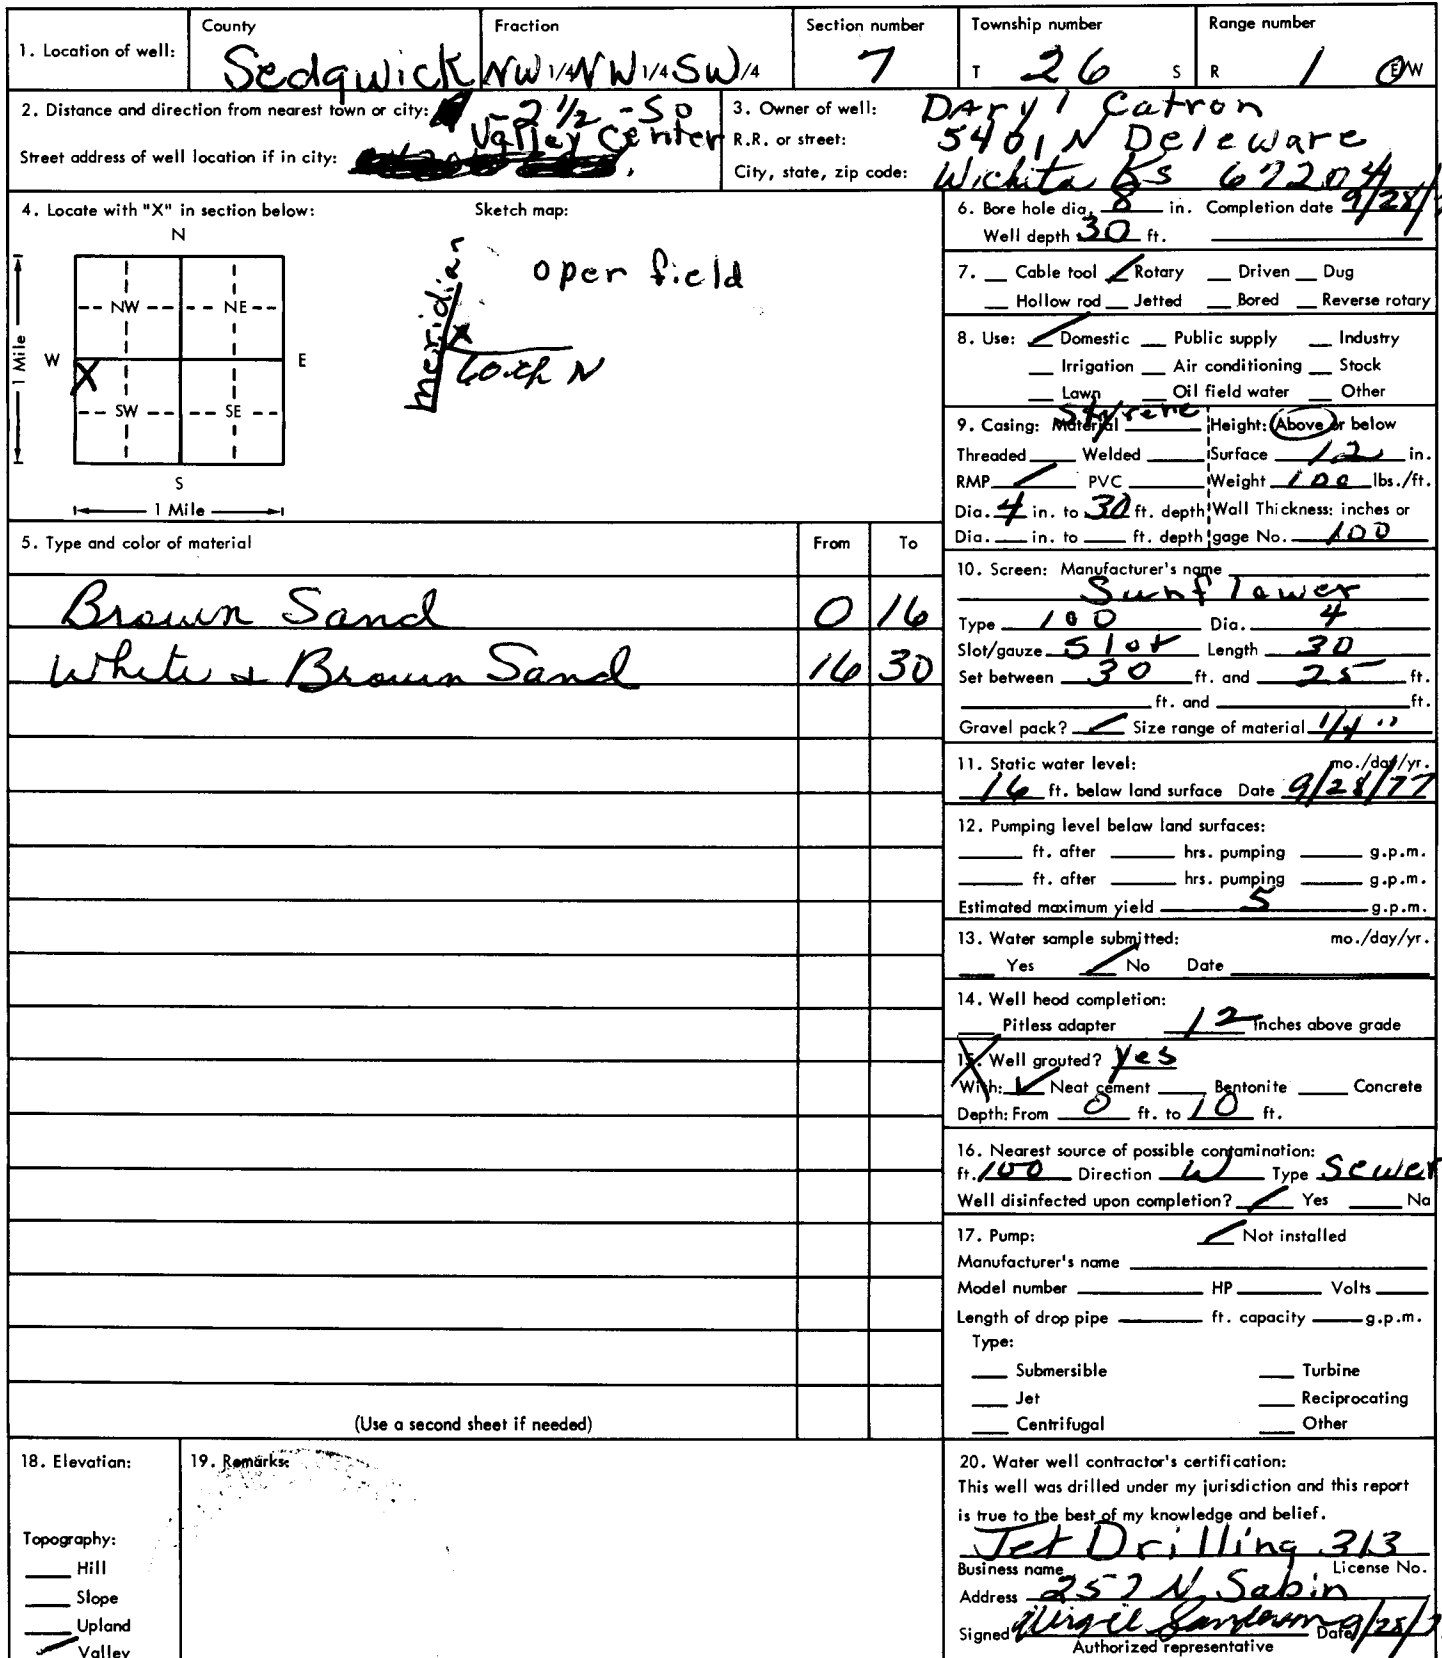 1. Location of well: County Sedgwick Fraction NW 1/4 NW 1/4 SW 1/4 Section number 7 Township number T 26 S Range number R 1 E/W
2. Distance and direction from nearest town or city: -2 1/2 -So Valley Center
Street address of well location if in city:
3. Owner of well: Daryl Catron
R.R. or street: 5401 N Deleware
City, state, zip code: Wichita Ks 67204
4. Locate with "X" in section below:
Sketch map:
N
NW NE
W E
X
SW SE
S
1 Mile
1 Mile
open field
meridian
X
60th N
5. Type and color of material From To
Brown Sand 0 16
White & Brown Sand 16 30
(Use a second sheet if needed)
6. Bore hole dia. 8 in. Completion date 9/28/
Well depth 30 ft.
7. Cable tool Rotary Driven Dug
Hollow rod Jetted Bored Reverse rotary
8. Use: Domestic Public supply Industry
Irrigation Air conditioning Stock
Lawn Oil field water Other
9. Casing: Material Styrene Height: Above or below
Threaded Welded Surface 12 in.
RMP PVC Weight 100 lbs./ft.
Dia. 4 in. to 30 ft. depth Wall Thickness: inches or
Dia. in. to ft. depth gage No. 100
10. Screen: Manufacturer's name
Sunflower
Type 100 Dia. 4
Slot/gauze Slot Length 30
Set between 30 ft. and 25 ft.
ft. and ft.
Gravel pack? Size range of material 1/4"
11. Static water level: mo./day/yr.
16 ft. below land surface Date 9/28/77
12. Pumping level below land surfaces:
ft. after hrs. pumping g.p.m.
ft. after hrs. pumping g.p.m.
Estimated maximum yield 5 g.p.m.
13. Water sample submitted: mo./day/yr.
Yes No Date
14. Well head completion:
Pitless adapter 12 Inches above grade
15. Well grouted? yes
With: Neat cement Bentonite Concrete
Depth: From 0 ft. to 10 ft.
16. Nearest source of possible contamination:
ft. 100 Direction W Type Sewer
Well disinfected upon completion? Yes No
17. Pump: Not installed
Manufacturer's name
Model number HP Volts
Length of drop pipe ft. capacity g.p.m.
Type:
Submersible Turbine
Jet Reciprocating
Centrifugal Other
18. Elevation:
Topography:
Hill
Slope
Upland
Valley
19. Remarks:
20. Water well contractor's certification:
This well was drilled under my jurisdiction and this report
is true to the best of my knowledge and belief.
Jet Drilling 313
Business name License No.
Address 257 N. Sabin
Signed Virgil Sanderson Date 9/28/7
Authorized representative